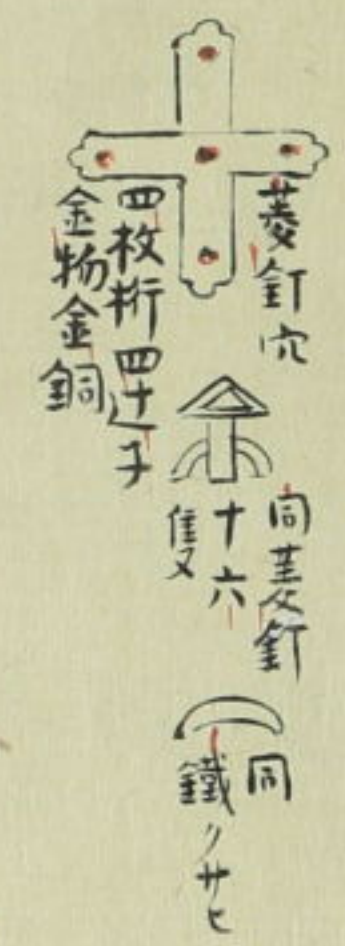 菱釘穴
四枚桁四辻子
金物金銅
同菱釘
十六
隻
同
鐵クサヒ